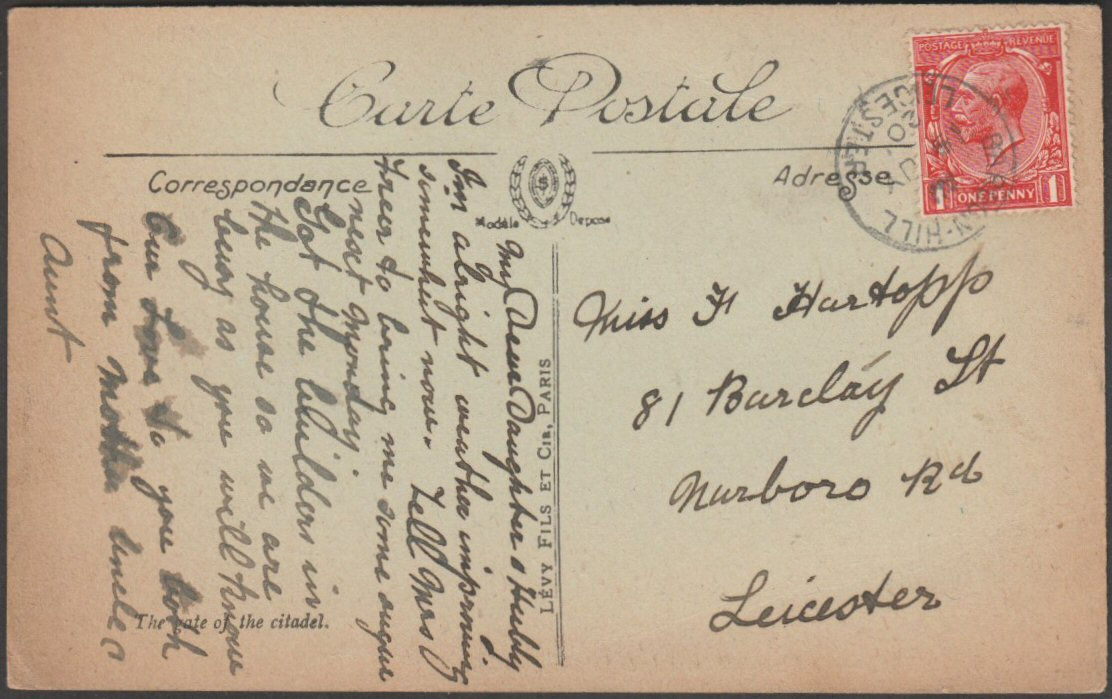 Carte Postale
Correspondance
Adresse
Modèle Déposé
POSTAGE REVENUE
1 ONE PENNY 1
LEICESTER
My Dear Daughter & Hubby
I'm alright weather improving
somewhat now. Tell Mrs
Freer to bring me some
next Monday.
Got the builders in
the house so we are
busy as you will know
Our Love to you both
from Mother Uncle &
Aunt
Miss F Hartopp
81 Barclay St
Narboro Rd
Leicester
LÉVY FILS ET CIE, PARIS
The gate of the citadel.